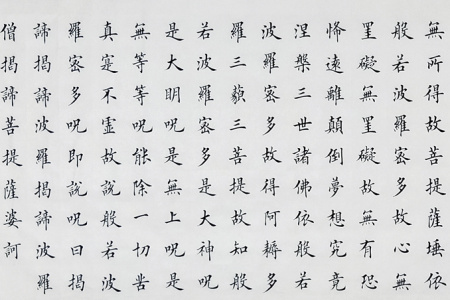 無所得故菩提薩埵依
般若波羅密多故心無
罣礙無罣礙故無有恐
怖遠離顛倒夢想究竟
涅槃三世諸佛依般若
波羅密多故得阿耨多
羅三藐三菩提故知般
若波羅密多是大神呪
是大明呪是無上呪是
無等等呪能除一切苦
真寔不虛故說般若波
羅密多呪即說呪曰揭
諦揭諦波羅揭諦波羅
僧揭諦菩提薩婆訶